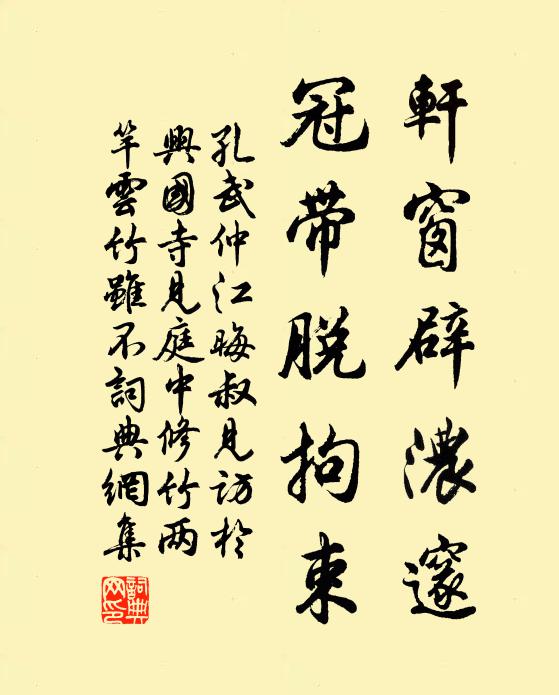 軒窗辟濃邃
冠帶脫拘束
孔武仲江晦叔見訪於
興國寺見庭中修竹兩
竿雲竹雖不詞典網集
詞典網印